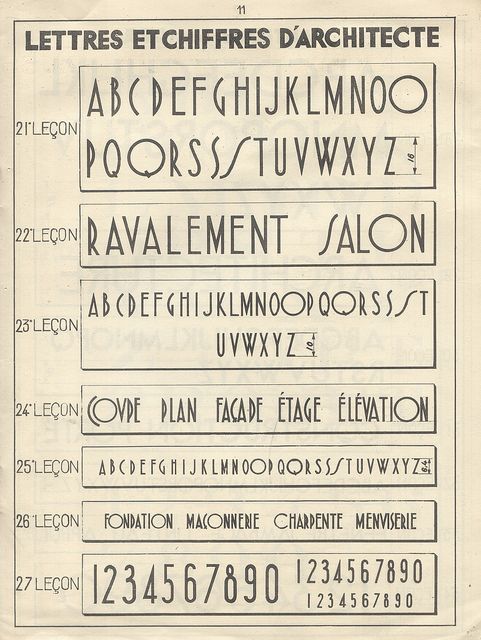 11
LETTRES ET CHIFFRES D'ARCHITECTE
21ᵉ LEÇON
ABCDEFGHIJKLMNOO
PQQRSSSTUVWXYZ 16
22ᵉ LEÇON
RAVALEMENT SALON
23ᵉ LEÇON
ABCDEFGHIJKLMNOOPQQRSSST
UVWXYZ 10
24ᵉ LEÇON
COVPE PLAN FAÇADE ÉTAGE ÉLÉVATION
25ᵉ LEÇON
ABCDEFGHIJKLMNOOPQQRSSSTUVWXYZ
26ᵉ LEÇON
FONDATION MACONNERIE CHARPENTE MENVISERIE
27 LEÇON
1234567890 1234567890
1234567890